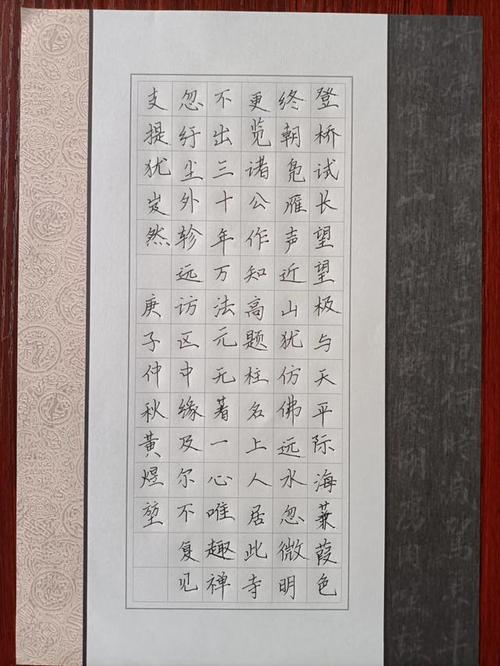 登桥试长望望极与天平际海蒹葭色
终朝凫雁声近山犹仿佛远水忽微明
更览诸公作知高题柱名上人居此寺
不出三十年万法元无著一心唯趣禅
忽纡尘外轸远访区中缘及尔不复见
支提犹岌然 庚子仲秋黄煜堃